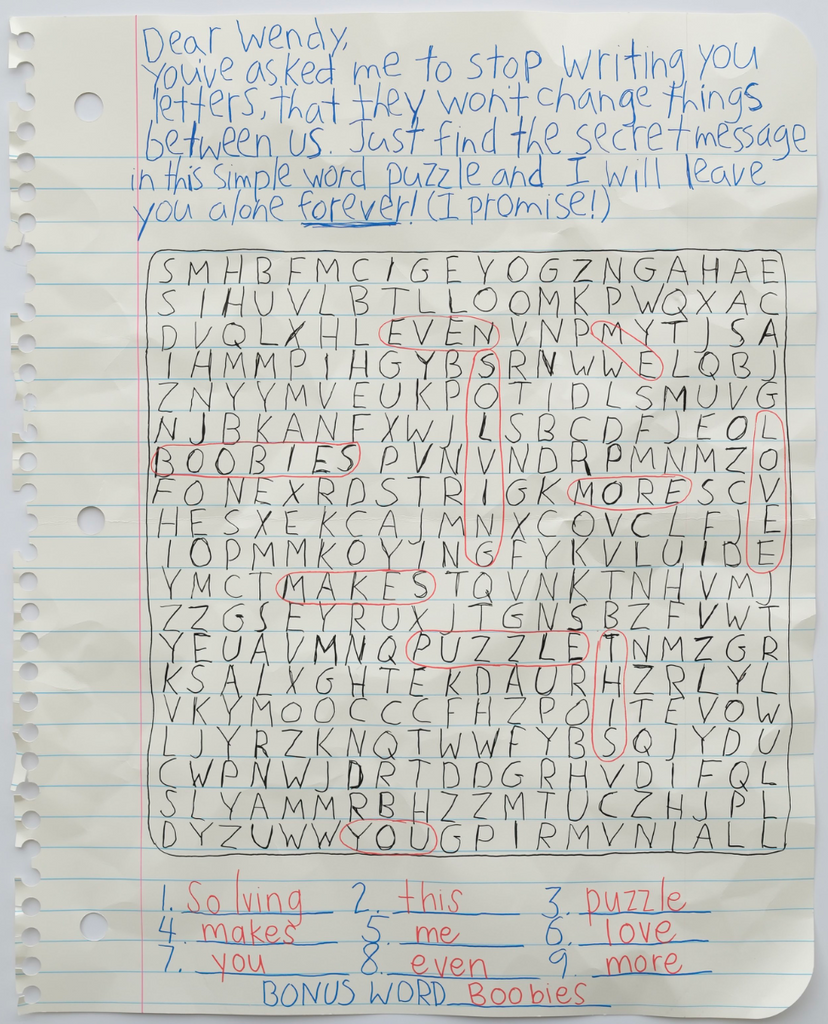 Dear Wendy,
You've asked me to stop writing you
letters, that they won't change things
between us. Just find the secret message
in this simple word puzzle and I will leave
you alone forever! (I promise!)
S M H B F M C I G E Y O G Z N G A H A E
S I H U V L B T L L O O M K P W Q X A C
D V Q L X H L E V E N V N P M Y T J S A
I H M M P I H G Y B S R N W W E L Q B J
Z N Y Y M V E U K P O T I D L S M U V G
N J B K A N F X W J L S B C D F J E O L
B O O B I E S P V N V N D R P M N M Z O
F O N E X R D S T R I G K M O R E S C V
H E S X E K C A J M N X C O V C L F J E
I O P M M K O Y J N G F Y K V L U I D E
Y M C T M A K E S T Q V N K T N H V M J
Z Z G S E Y R U X J T G N S B Z F V W T
Y E U A V M N Q P U Z Z L E T N M Z G R
K S A L X G H T E K D A U R H Z R L Y L
V K Y M O O C C C F H Z P O I T E V O W
L J Y R Z K N Q T W W F Y B S Q J Y D U
C W P N W J D R T D D G R H V D I F Q L
S L Y A M M R B H Z Z M T U C Z H J P L
D Y Z U W W Y O U G P I R M V N I A L L
1. Solving 2. this 3. puzzle
4. makes 5. me 6. love
7. you 8. even 9. more
BONUS WORD Boobies